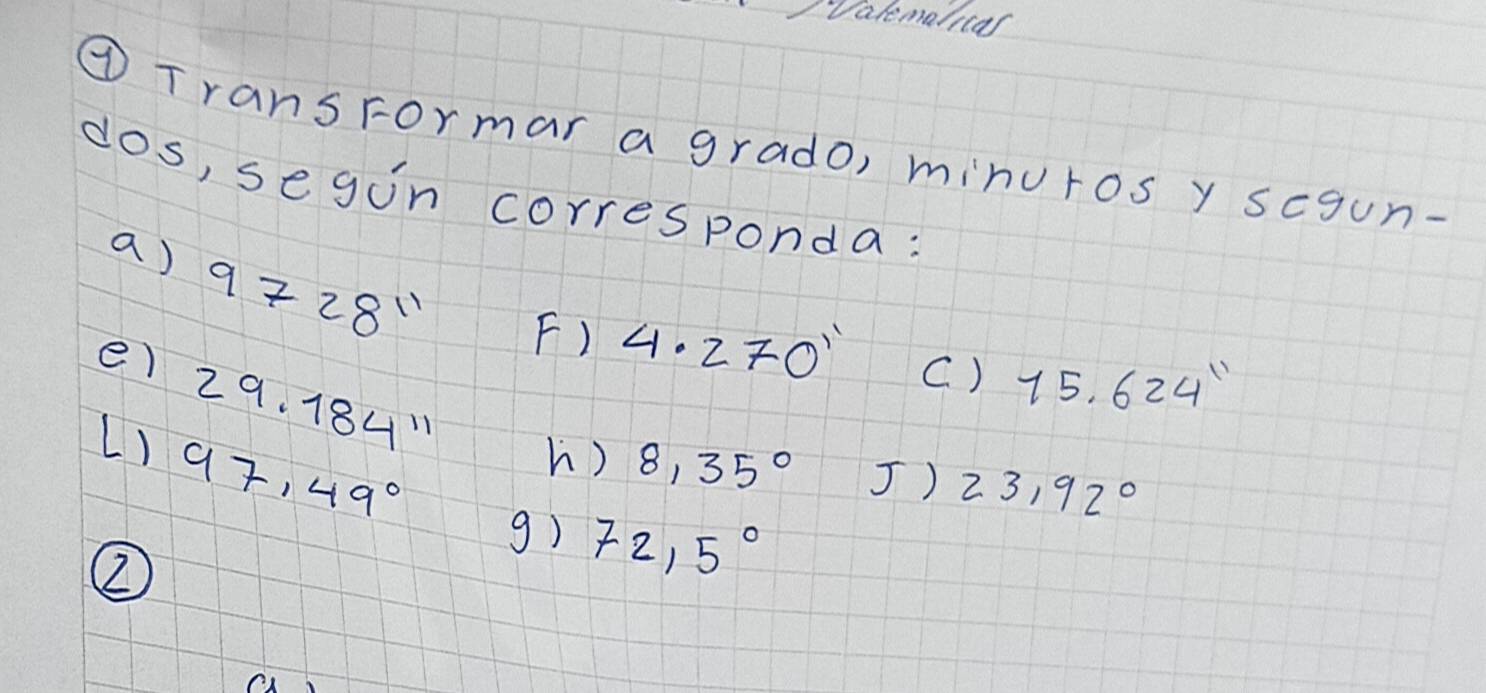 Matematicas
① Transformar a grado, minutos y segun-
dos, según corresponda:
a) 9728" F) 4.270" C) 15.624"
e) 29.184" h) 8,35° J) 23,92°
L) 97,49° g) 72,5°
②